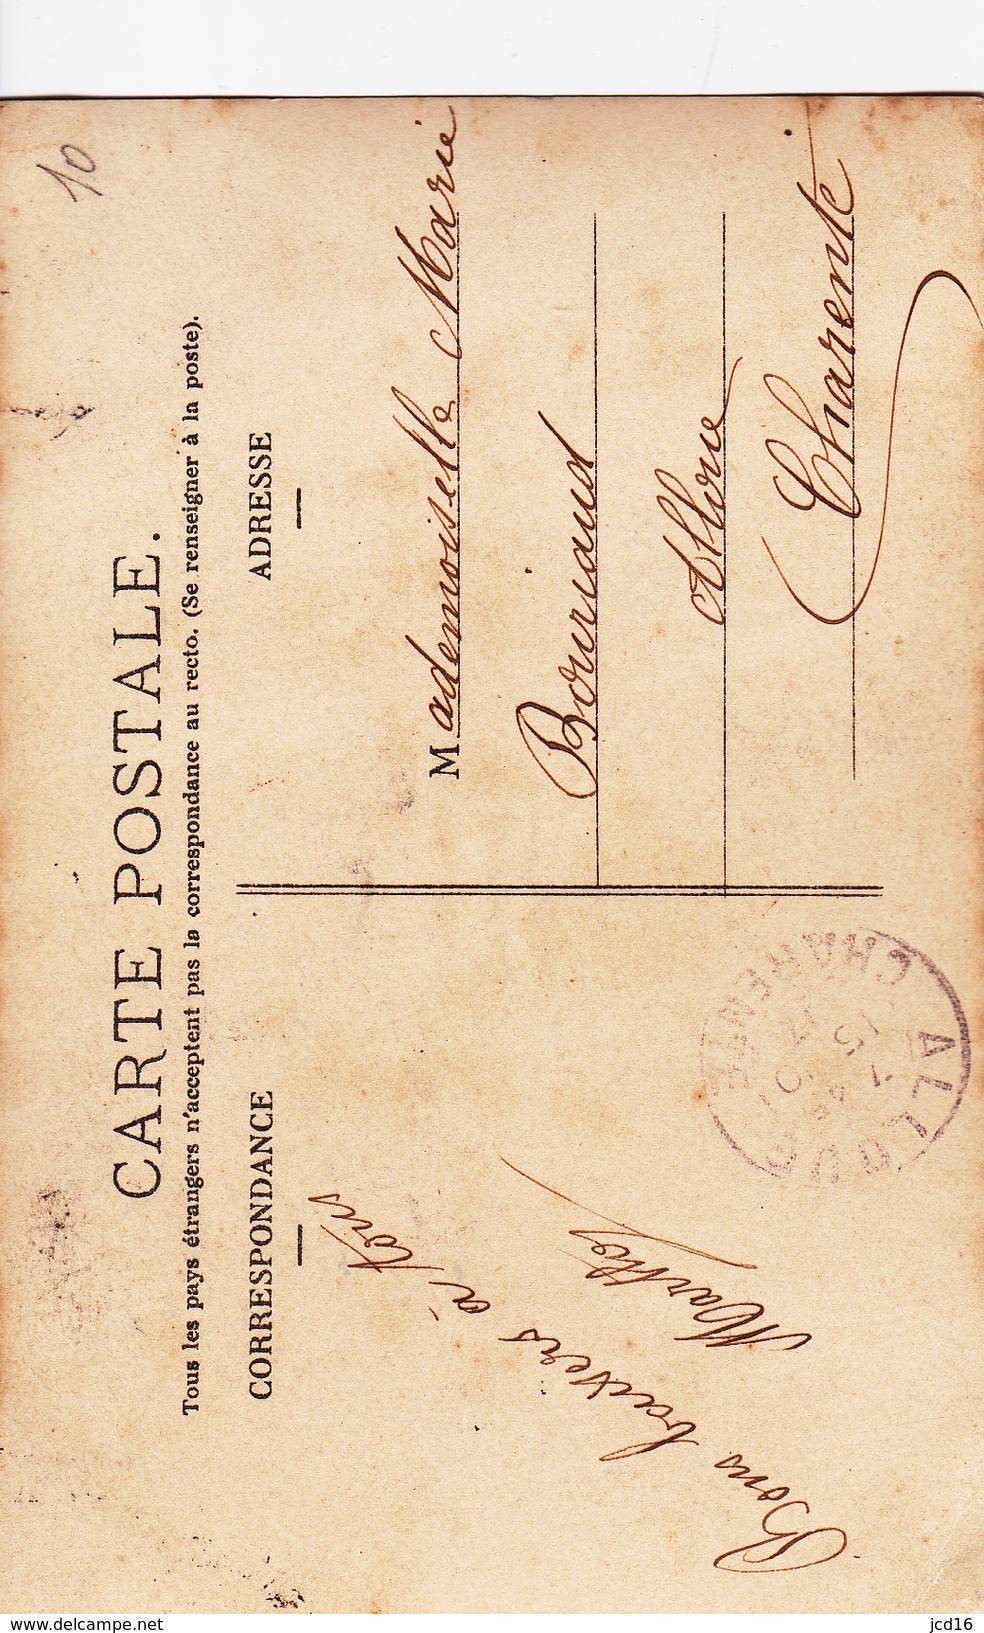 10
CARTE POSTALE.
Tous les pays étrangers n'acceptent pas la correspondance au recto. (Se renseigner à la poste).
CORRESPONDANCE
Bons baisers à tous
Marthe
ADRESSE
Mademoiselle Marie
Bouriaud
Alloue
Charente
ALLOUE
CHARENTE
jcd16
www.delcampe.net